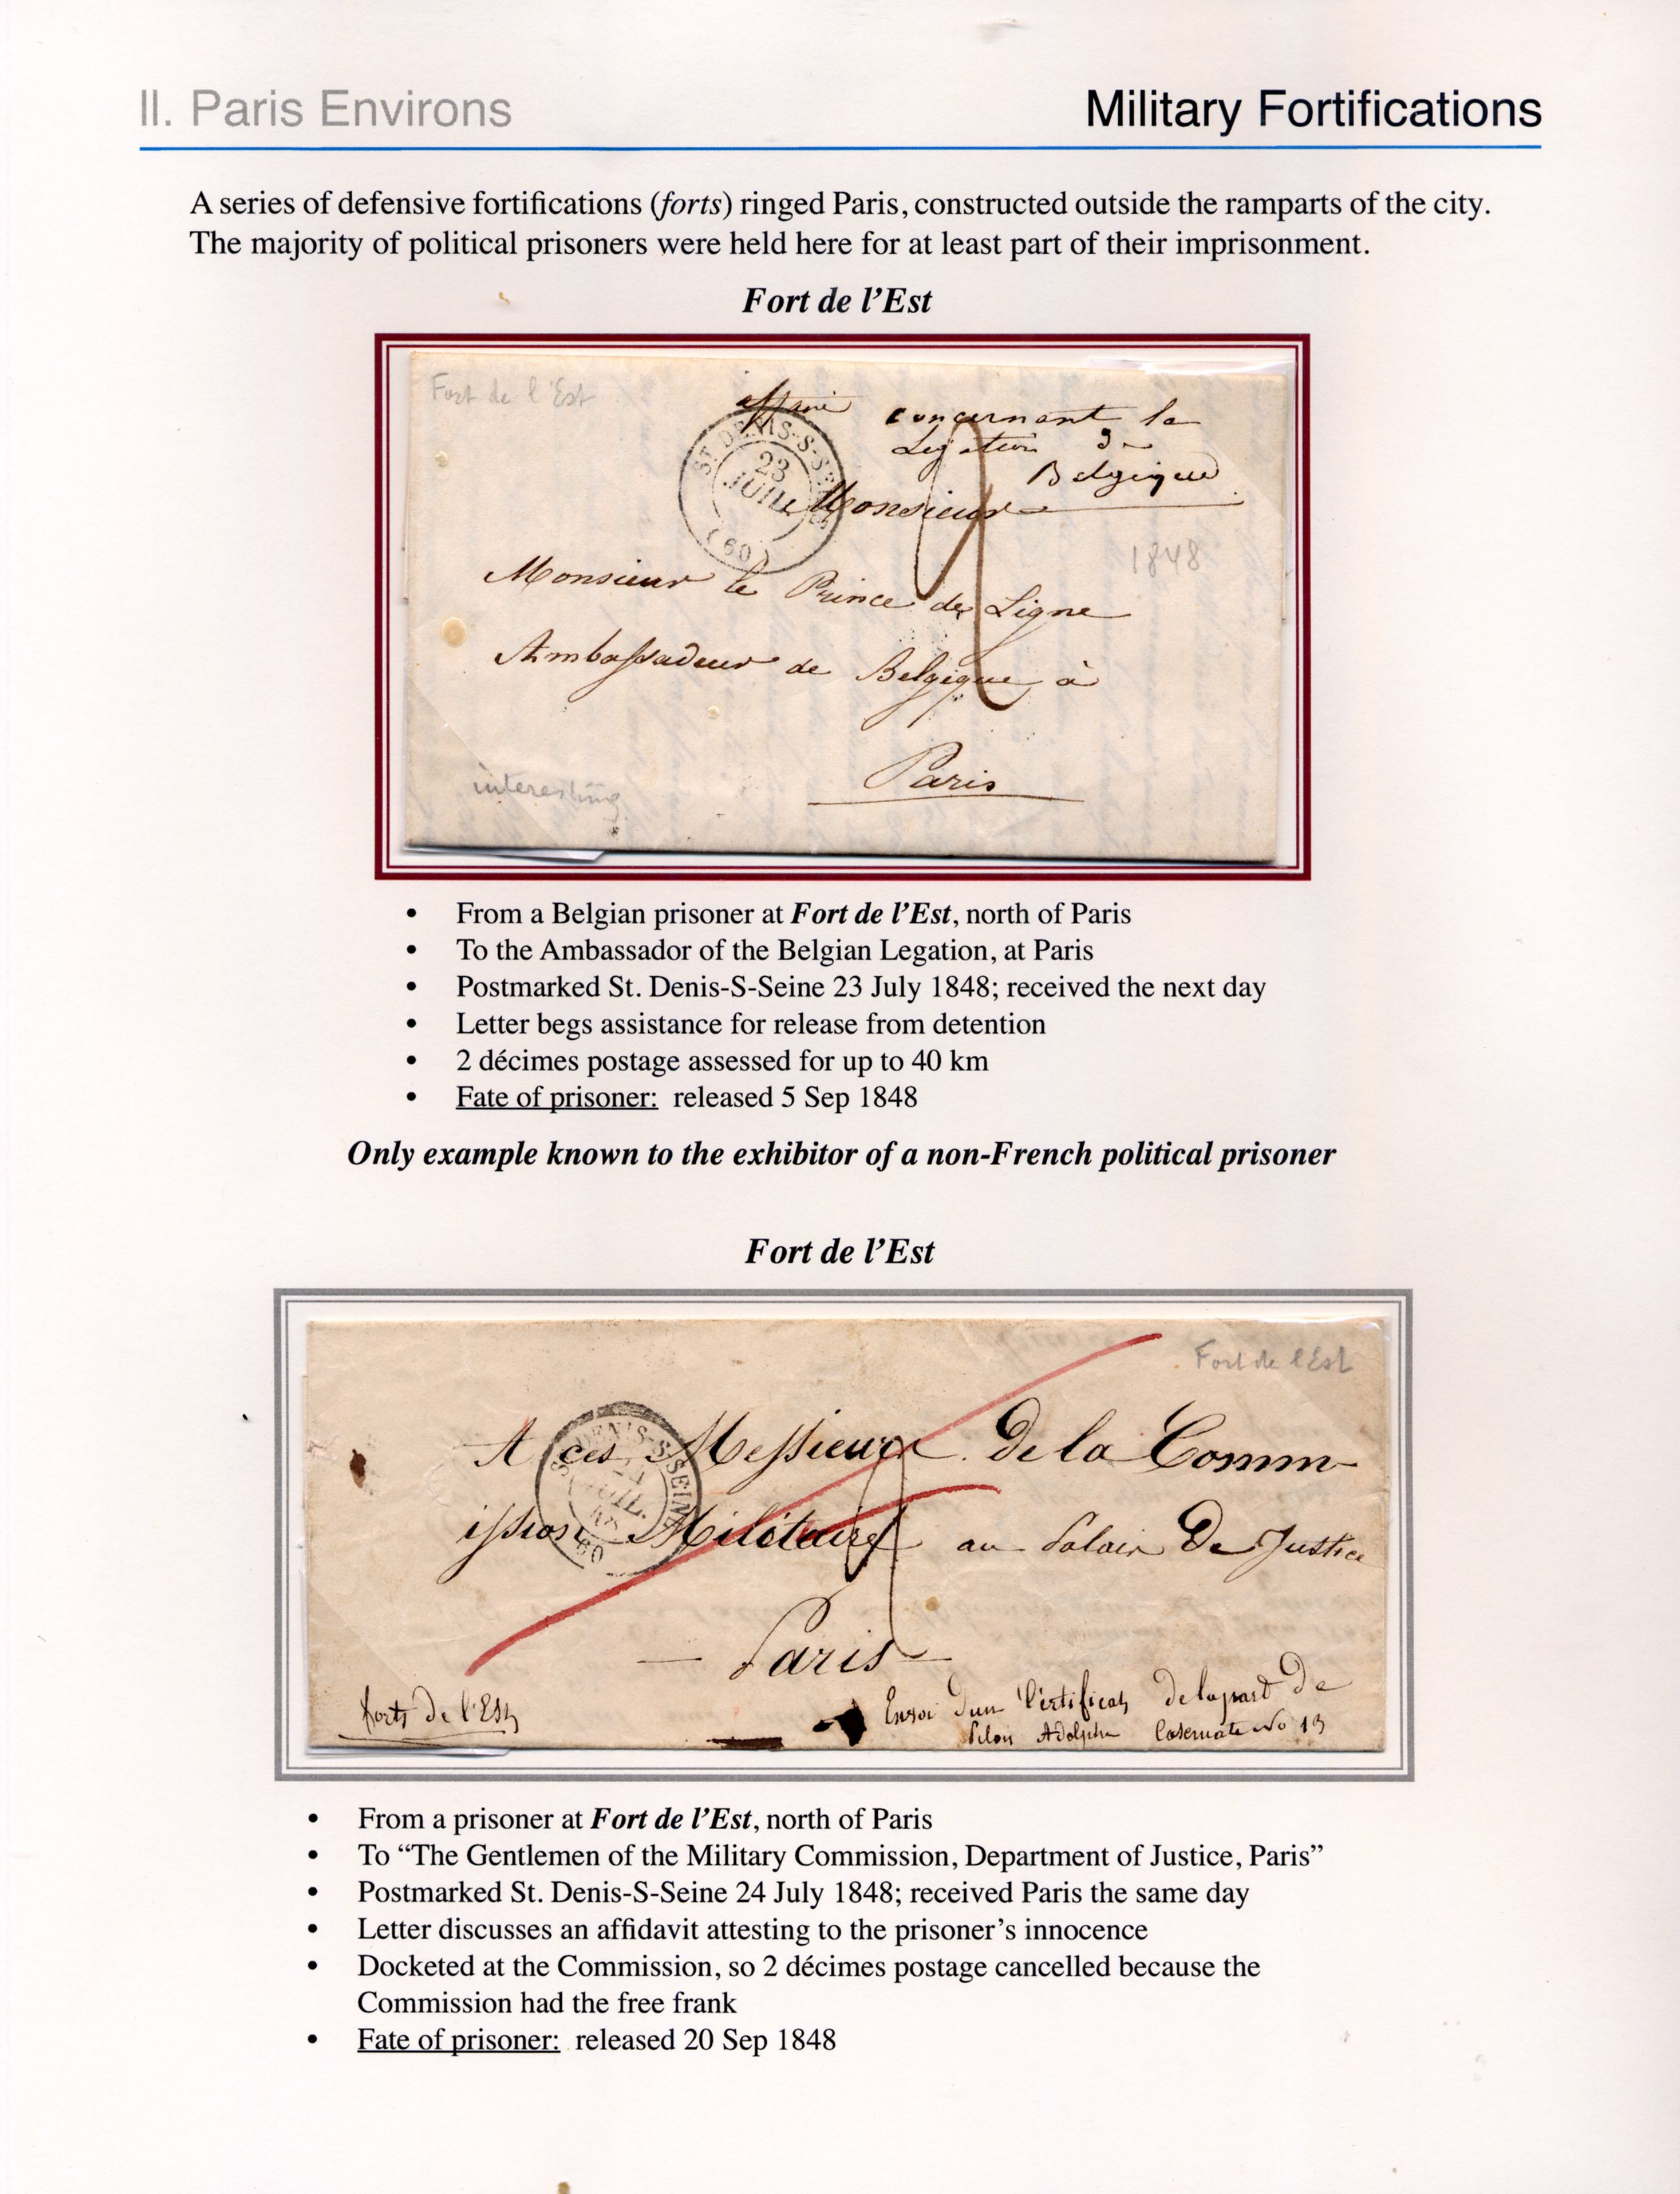 II. Paris Environs
Military Fortifications
A series of defensive fortifications (forts) ringed Paris, constructed outside the ramparts of the city.
The majority of political prisoners were held here for at least part of their imprisonment.
Fort de l'Est
Fort de l'Est
concernant la
Legation de
Belgique
ST DENIS-S-S
23
JUIL
(60)
Monsieur
1848
Monsieur le Prince de Ligne
Ambassadeur de Belgique à
Paris
interesting
• From a Belgian prisoner at Fort de l'Est, north of Paris
• To the Ambassador of the Belgian Legation, at Paris
• Postmarked St. Denis-S-Seine 23 July 1848; received the next day
• Letter begs assistance for release from detention
• 2 décimes postage assessed for up to 40 km
• Fate of prisoner: released 5 Sep 1848
Only example known to the exhibitor of a non-French political prisoner
Fort de l'Est
Fort de l'Est
A ces Messieurs De la Comm
ission Militaire au Palais De Justice
DENIS-S-SEINE
24
JUIL.
48
60
Paris
forts De l'Est
Envoi d'un Certificat De la part De
Adolphe Casemate No 13
• From a prisoner at Fort de l'Est, north of Paris
• To “The Gentlemen of the Military Commission, Department of Justice, Paris”
• Postmarked St. Denis-S-Seine 24 July 1848; received Paris the same day
• Letter discusses an affidavit attesting to the prisoner's innocence
• Docketed at the Commission, so 2 décimes postage cancelled because the
Commission had the free frank
• Fate of prisoner: released 20 Sep 1848